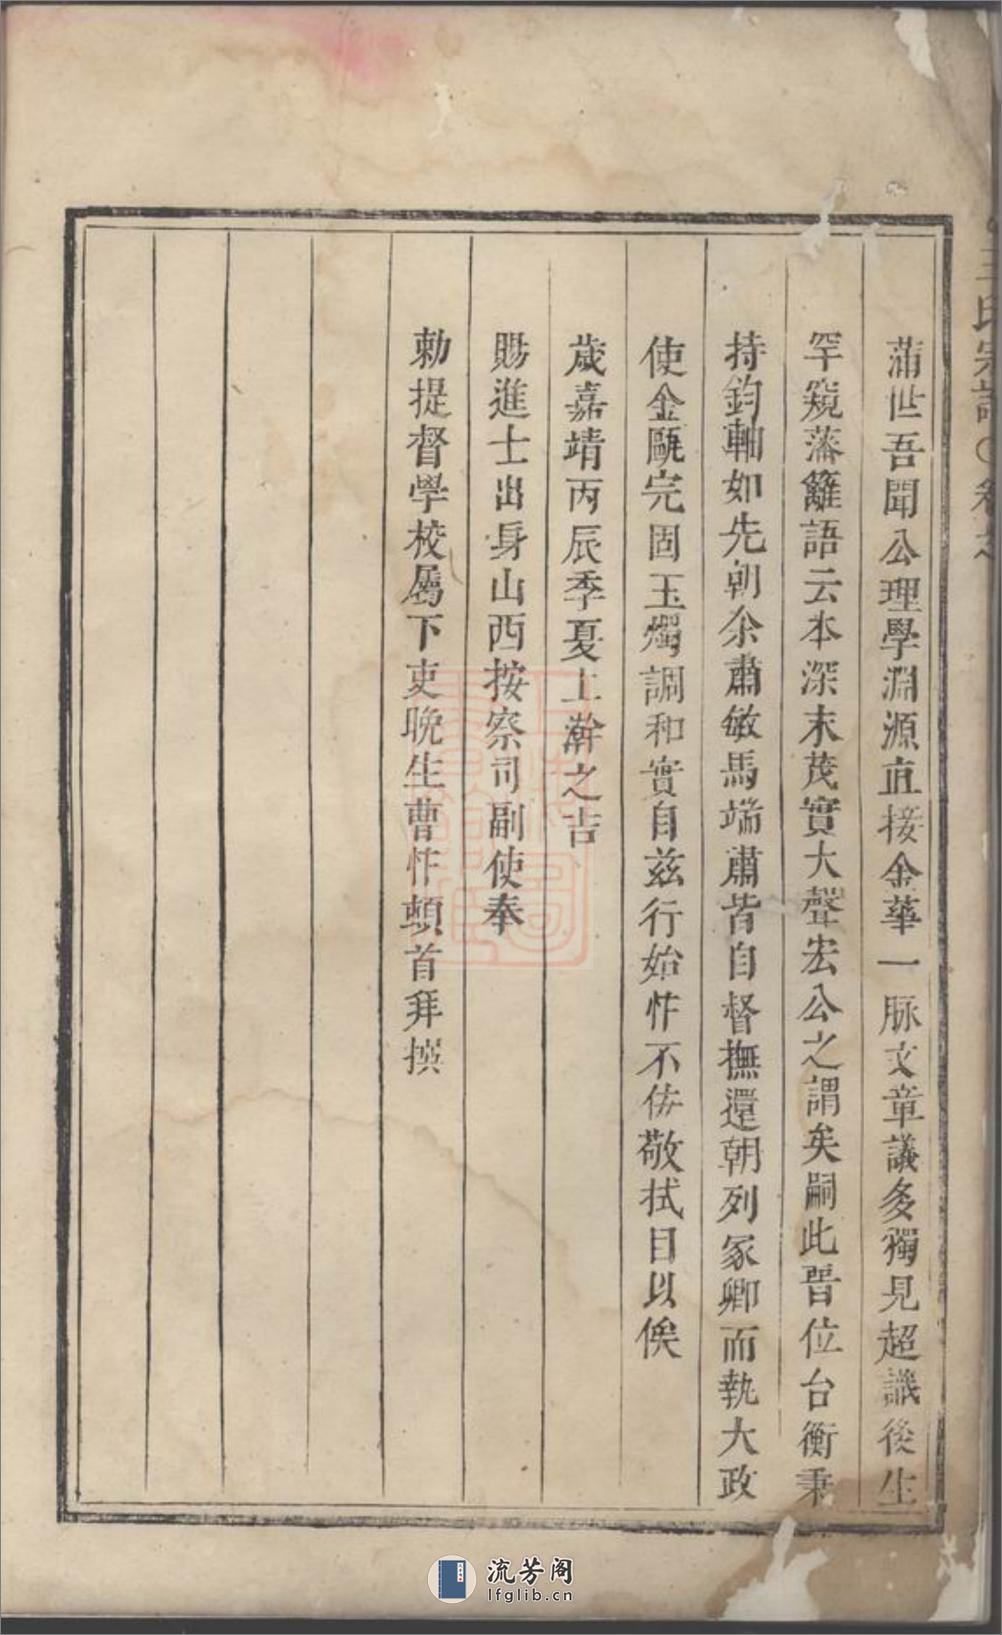 蒲世吾聞公理學淵源直接金華一脉文章議多獨見超識後生
罕窺藩籬語云本深末茂實大聲宏公之謂矣嗣此晋位台衡秉
持鈞軸如先朝余肅敏馬端肅皆自督撫還朝列冢卿而執大政
使金甌完固玉燭調和實自兹行始怍不佞敬拭目以俟
歲嘉靖丙辰季夏上澣之吉
賜進士出身山西按察司副使奉
勅提督學校屬下吏晚生曹怍頓首拜撰
王氏宗譜
流芳阁
lfglib.cn